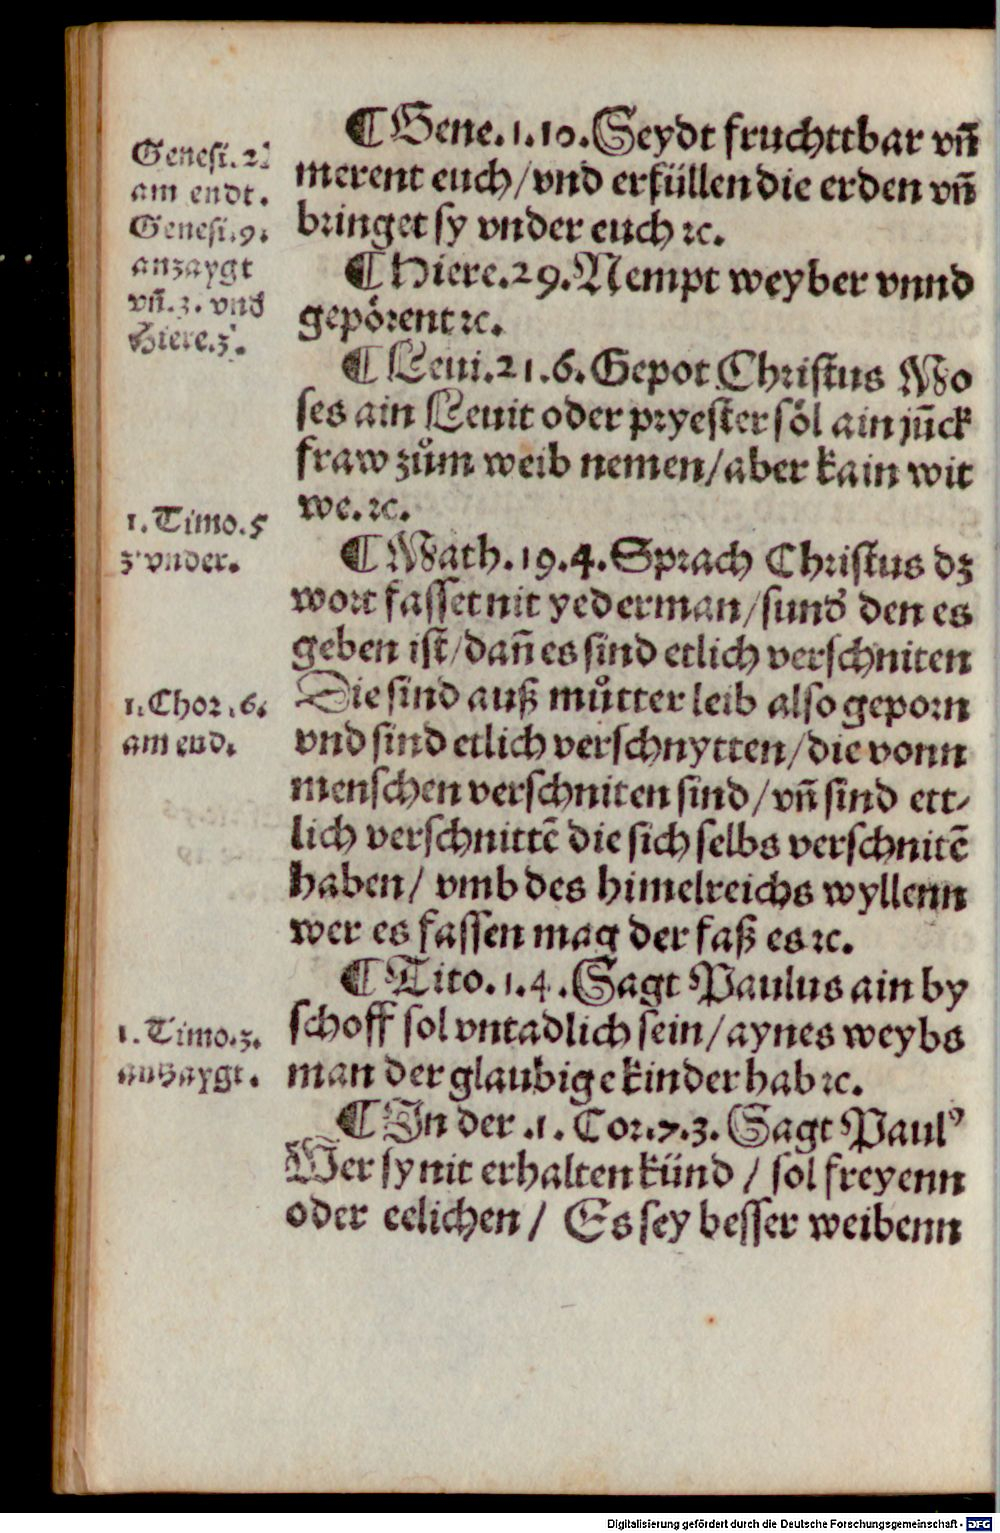 Genesi. 2.
am endt.
Genesi. 9.
anzaygt
vn̄. 3. vnd
Hiere. 3.
1. Timo. 5
vnder.
1. Chor. 6.
am end.
1. Timo. 3.
anzaygt.
¶ Gene. 1. 10. Seydt fruchttbar vn̄
merent euch / vnd erfüllen die erden vn̄
bringet sy vnder euch ꝛc.
¶ Hiere. 29. Nempt weyber vnnd
gepörent ꝛc.
¶ Leui. 21. 6. Gepot Christus Mo
ses ain Leuit oder pryester söl ain jūck
fraw zům weib nemen / aber kain wit
we. ꝛc.
¶ Math. 19. 4. Sprach Christus dz
wort fasset nit yederman / sund̕ den es
geben ist / dan̄ es sind etlich verschniten
Die sind auß můtter leib also geporn
vnd sind etlich verschnytten / die vonn
menschen verschniten sind / vn̄ sind ett-
lich verschnittē die sich selbs verschnitē
haben / vmb des himelreichs wyllenn
wer es fassen mag der faß es ꝛc.
¶ Tito. 1. 4. Sagt Paulus ain by
schoff sol vntadlich sein / aynes weybs
man der glaubige kinder hab ꝛc.
¶ In der .1. Cor. 7. 3. Sagt Paulꝰ
Wer sy nit erhalten künd / sol freyenn
oder eelichen / Es sey besser weibenn
Digitalisierung gefördert durch die Deutsche Forschungsgemeinschaft - DFG